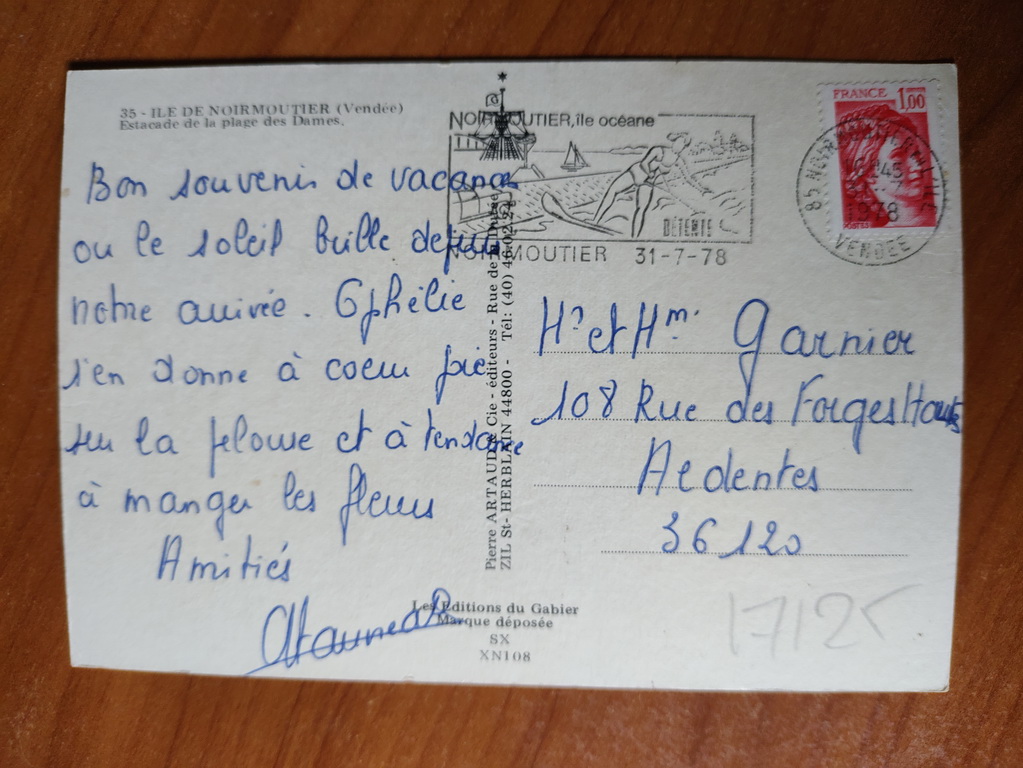 35 - ILE DE NOIRMOUTIER (Vendée)
Estacade de la plage des Dames.
Bon souvenir de vacances
ou le soleil brille depuis
notre arrivée. Ophélie
s'en donne à coeur joie
sur la pelouse et à tendance
à manger les fleurs
Amitiés
Pierre ARTAUD & Cie - éditeurs - Rue de
ZIL St-HERBLAIN 44800 - Tél: (40) 46.02.24
Les Editions du Gabier
Marque déposée
SX
XN108
NOIRMOUTIER, île océane
DÉTENTE
NOIRMOUTIER 31-7-78
FRANCE 1,00
85 NOIRMOUTIER
1978
VENDEE
Mr et Mme Garnier
108 Rue des Forges Hautes
Ardentes
36120